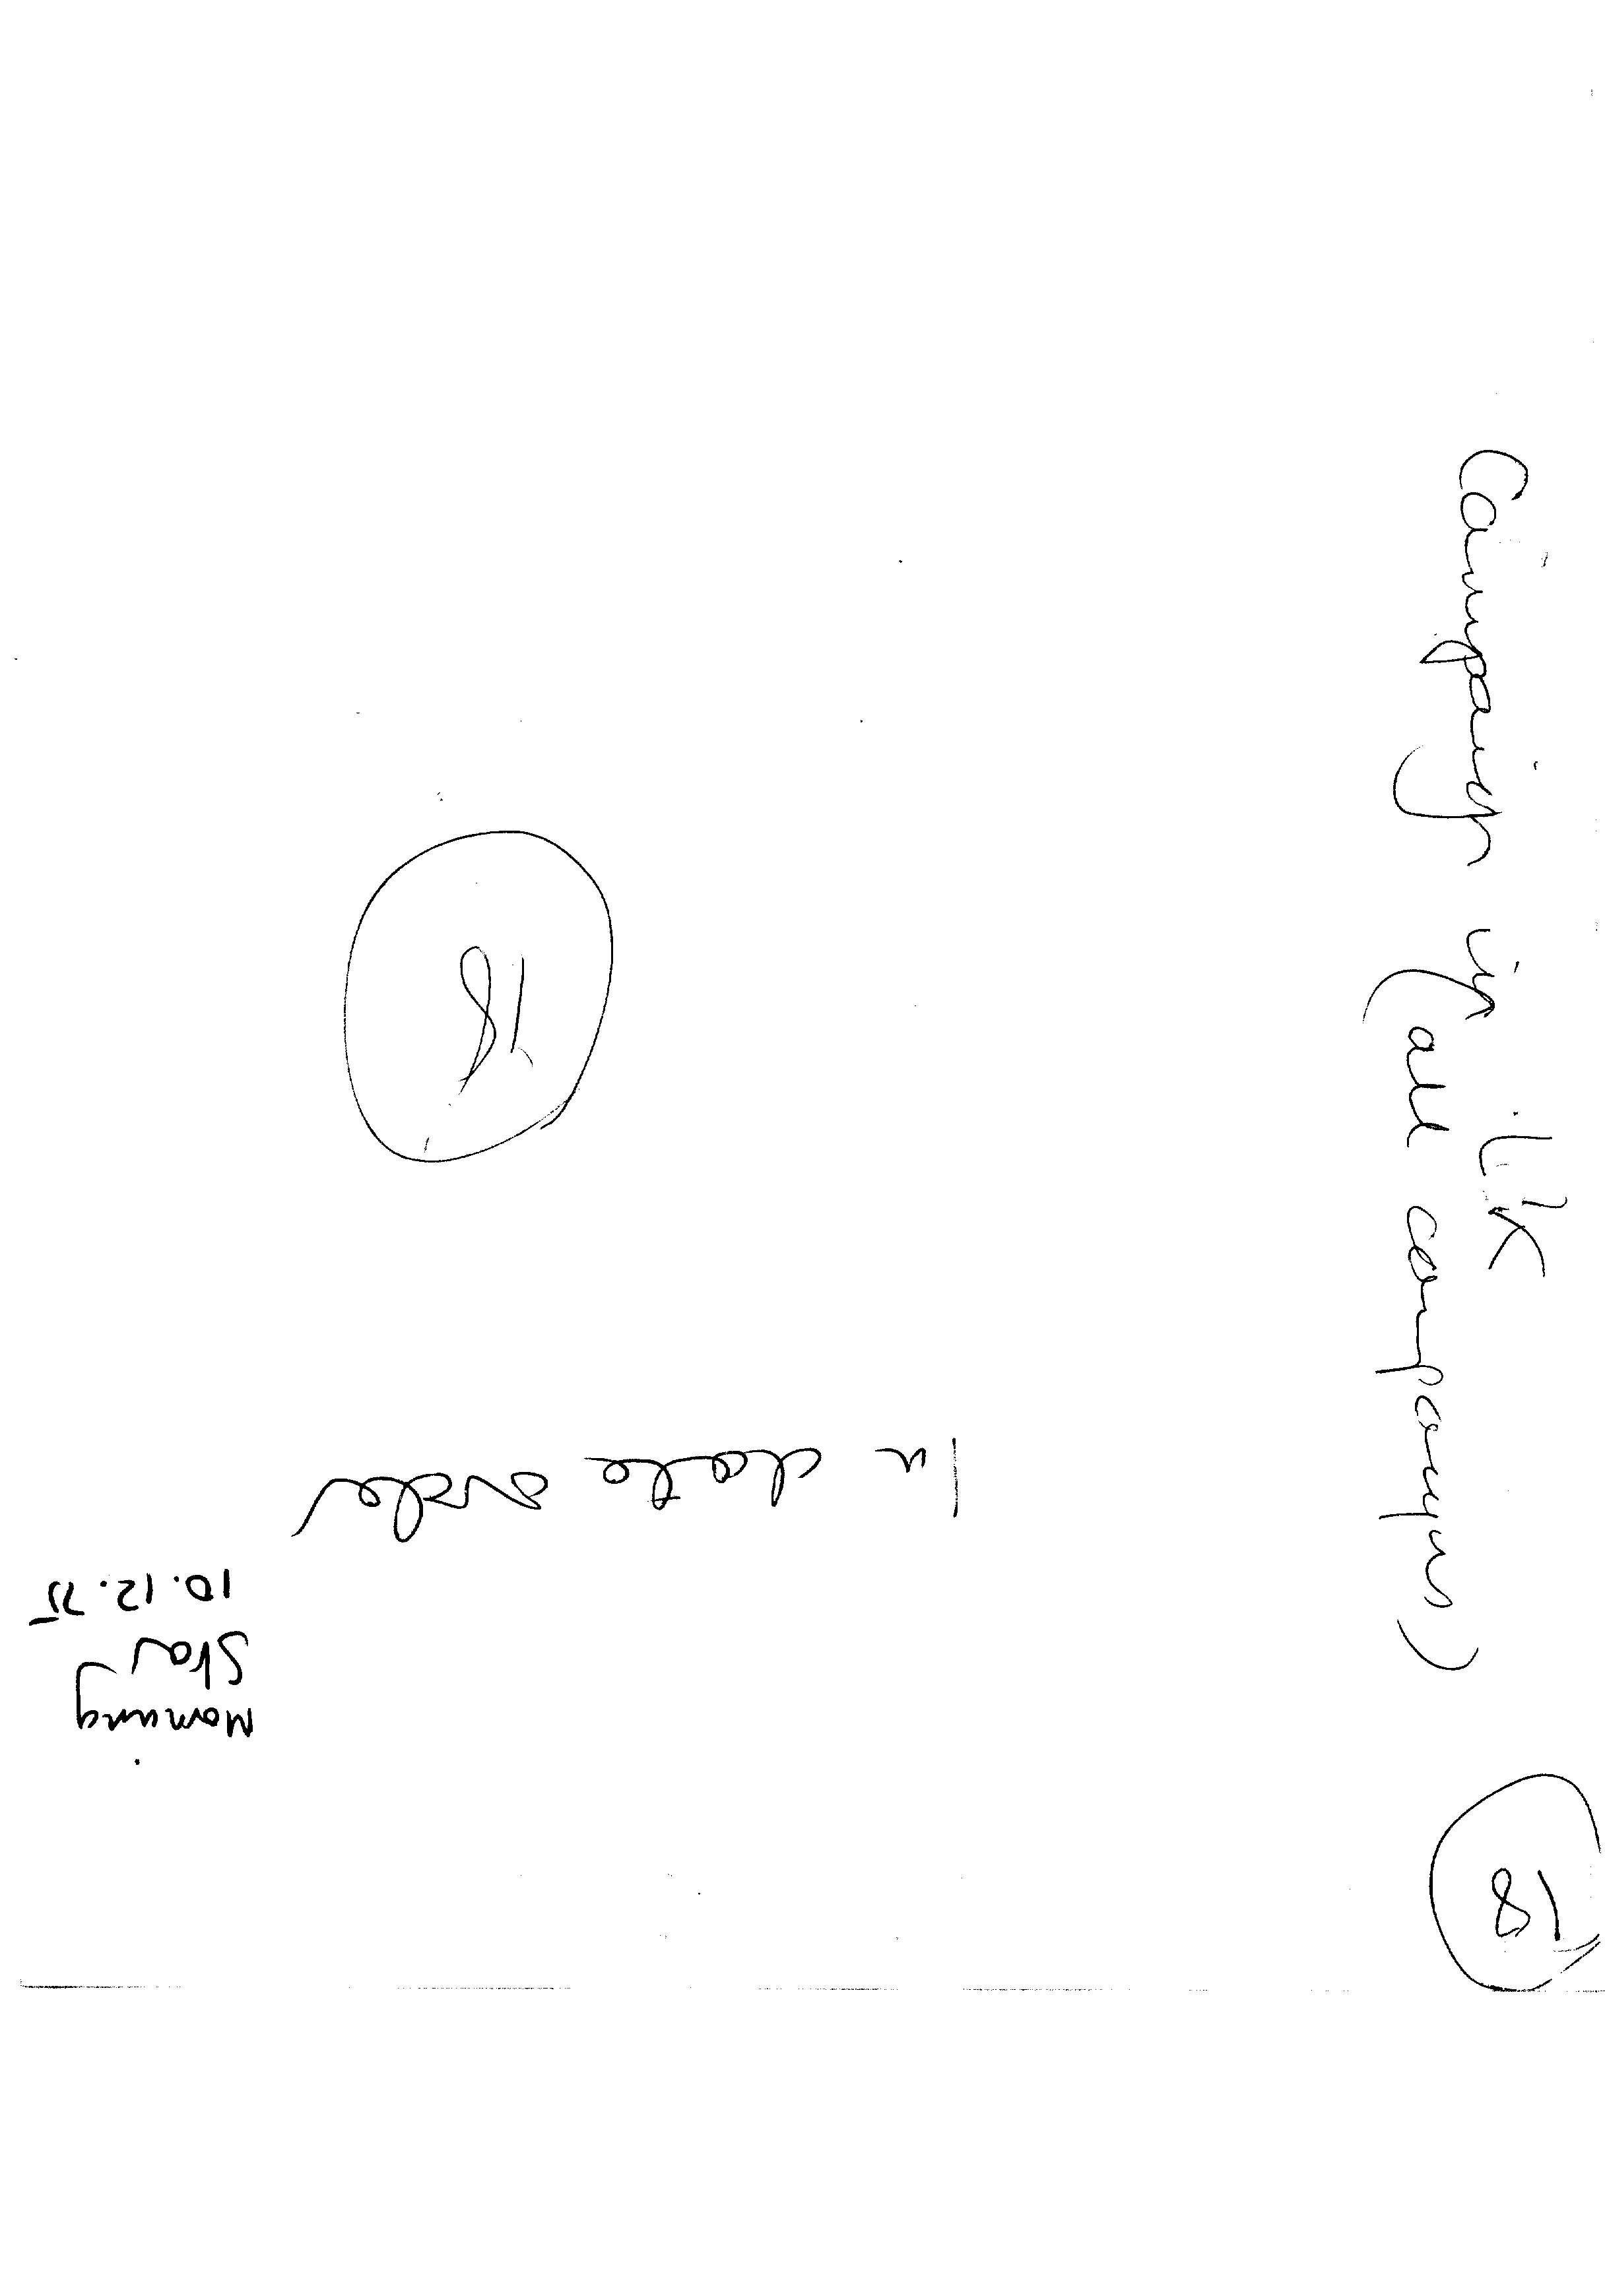 Campaign in UK
(all campaigns)
18
18
In date order
Morning
Star
10.12.75